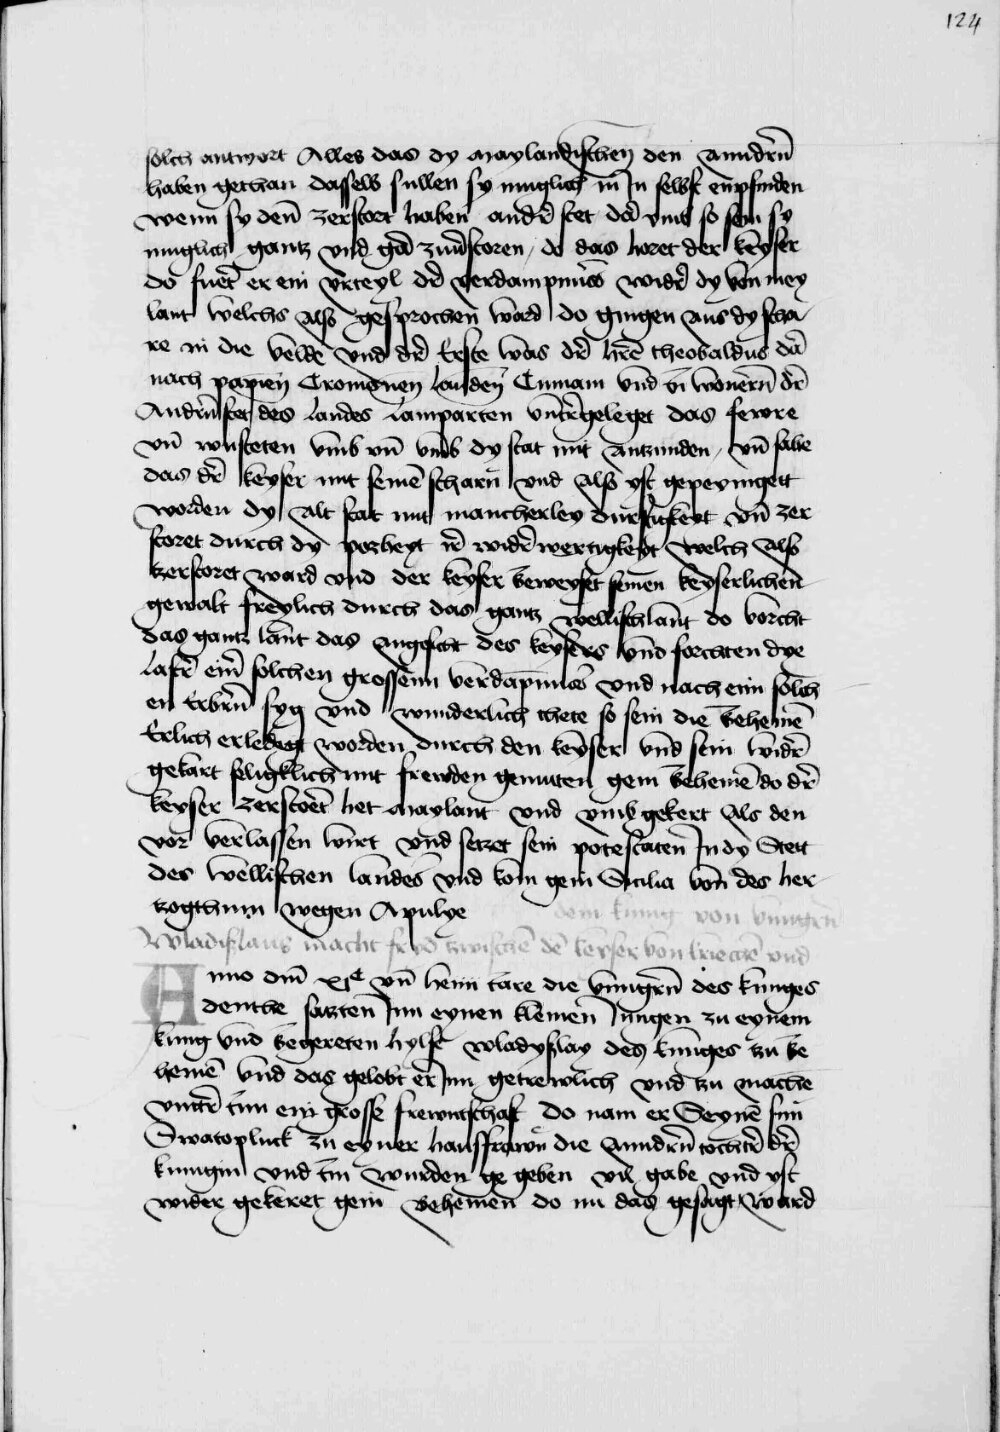 124
solch antwort Alles das dy maylandischen den Anndrñ
haben gethan dasselb sullen sy muglich in In selbst enpfinden
wenn sy denn zerstort haben andr̃ stet dar vmb so sein sy
muglich gantz vnd gar zuuerstoren do das horet der keyser
do fuert er ein vrteyl dr̃ verdampnuss widr̃ dy von mey
lant welchs also gesprochen ward do gingen aus dy scha
re in die velde vnd dr̃ Erste was dr̃ hr̃e theobaldus dar
nach papien Cromonen landen Cumam vnd dr̃
Andrñ stet des landes lamparten vntr̃geleget das fewre
vñ wusteten vmb vñ vmb dy stat mit Antzunden vñ sahe
das dr̃ keyser mit seinẽ scharn vnd also yst gepeyniget
worden dy alt stat mit mancherley durftigkeyt vñ zer
storet durch dy pozheyt ir̃ widr̃wertigkeyt welch also
tzerstoret ward vnd der keyser beweyset seinen keyserlichen
gewalt freylich durch das gantz wellischlant do vorcht
das gantz lannt das angesicht des keysers vnd forchten dye
laster einr̃ solchen grossenn verdapnuss vnd nach eim solch
en Erbrñ syg vnd wunderlich thete so sein die behemẽ
Erlich erlediget worden durch den keyser vnd sein widr̃
gekart seligklich mit frewden gemuten gein behemẽ do dr̃
keyser zerstoert het maylant vnd vmb gekert Als den
vor verlassen wirt vnd setzet sein potestaten In dy Stett
des wellischen landes vnd kom gein Sicilia von des her
tzogthum wegen Apulye
dem kunig von vnngrñ
Wladislaus macht fryd zwischẽ dẽ keyser von kriechẽ vnd
Anno dm̃ xjᶜ vñ Jare die vnngrñ des kuniges
satzten Inn eynen kleinen Jungen zu eynem
kunig vnd begereten hylff Wladyslay des kuniges zu be
hemẽ vnd das gelobt er Im getrewlich vnd zu mache
vnttr̃ Inn ein grosse frewntschaft do nam er Seynẽ sun
Swatopluck zu eyner hausfrawn die Anndrñ tochtr̃ dr̃
kunigin vnd Im wurden ge geben vil gabe vnd yst
wider gekeret gein Behemen do nu das gesagt ward